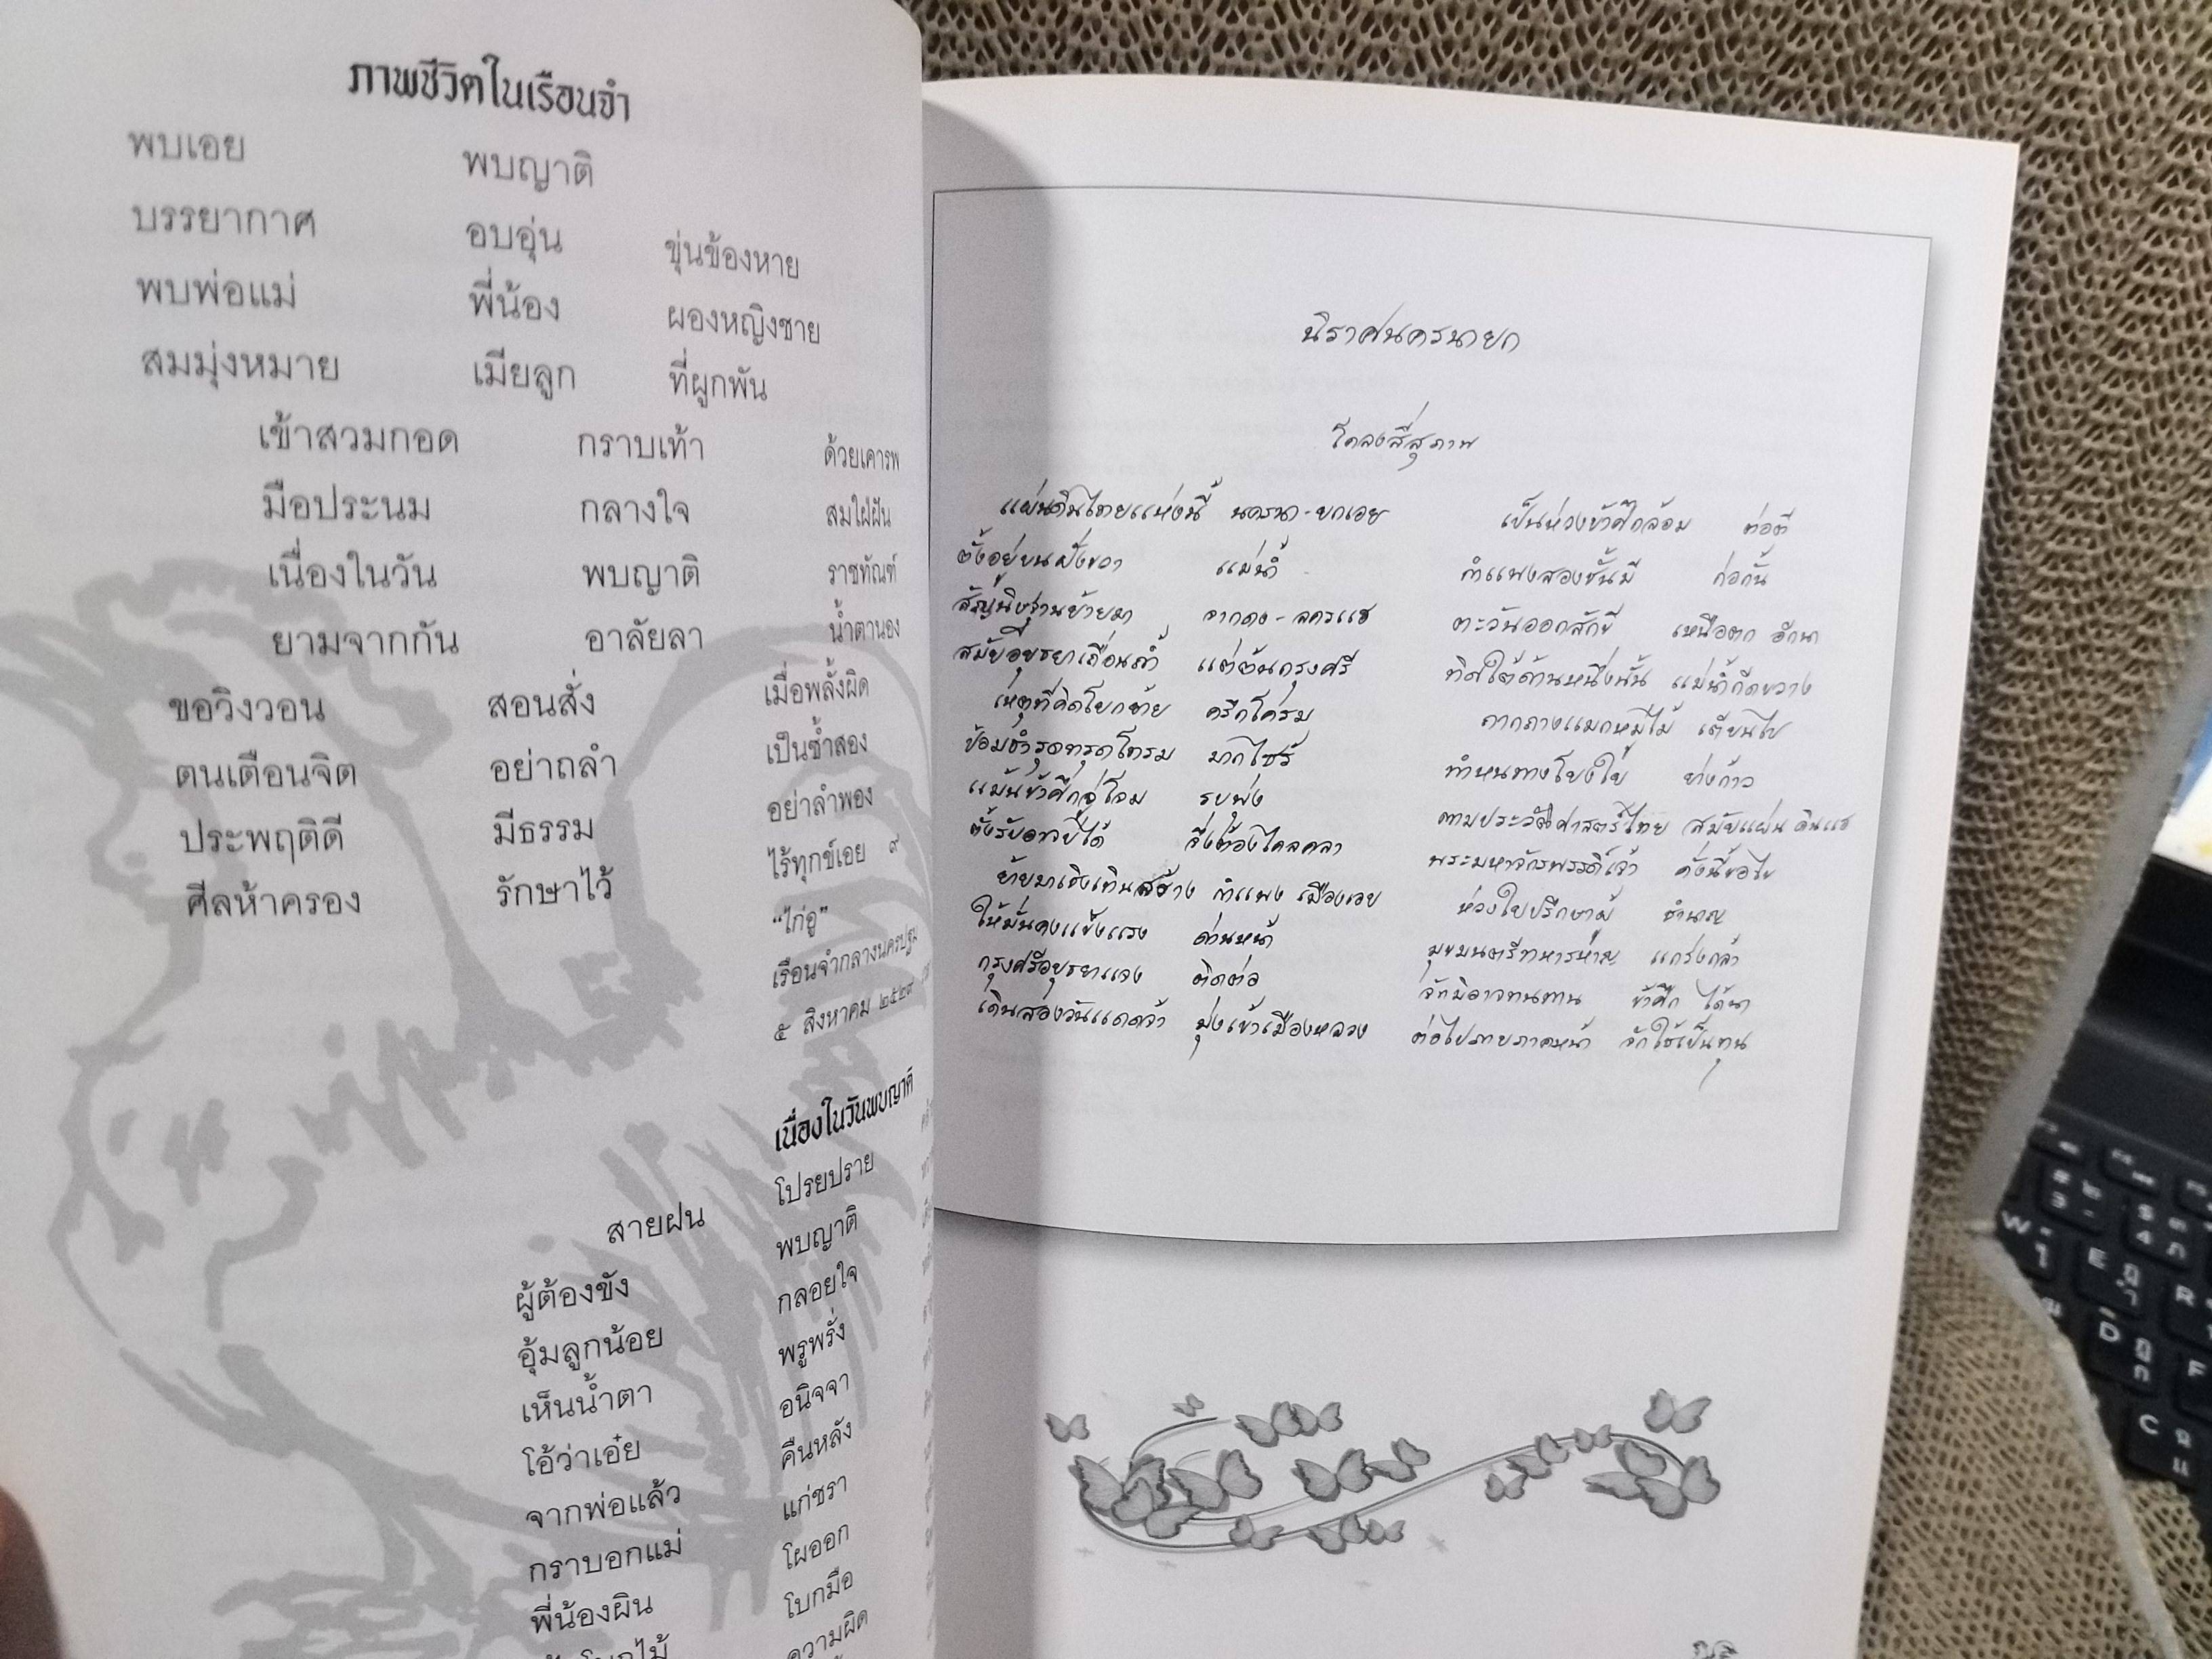 ภาพชีวิตในเรือนจำ
พบเอย พบญาติ
บรรยากาศ อบอุ่น ขุ่นข้องหาย
พบพ่อแม่ พี่น้อง ผองหญิงชาย
สมมุ่งหมาย เมียลูก ที่ผูกพัน
เข้าสวมกอด กราบเท้า ด้วยเคารพ
มือประนม กลางใจ สมใฝ่ฝัน
เนื่องในวัน พบญาติ ราชทัณฑ์
ยามจากกัน อาลัยลา น้ำตานอง
ขอวิงวอน สอนสั่ง เมื่อพลั้งผิด
ตนเตือนจิต อย่าถลำ เป็นซ้ำสอง
ประพฤติดี มีธรรม อย่าลำพอง
ศีลห้าครอง รักษาไว้ ไร้ทุกข์เอย ๙
“ไก่อู”
เรือนจำกลางนครปฐม
๕ สิงหาคม ๒๕๒๙
เนื่องในวันพบญาติ
สายฝน โปรยปราย
ผู้ต้องขัง พบญาติ
อุ้มลูกน้อย กลอยใจ
เห็นน้ำตา พรูพรั่ง
โอ้ว่าเอ๋ย อนิจจา
จากพ่อแล้ว คืนหลัง
กราบอกแม่ แก่ชรา
พี่น้องผิน โผออก
โบกไม้ โบกมือ
ความผิด
นิราศนครนายก
โคลงสี่สุภาพ
แผ่นดินไทยแห่งนี้ นครนา-ยกเอย
ตั้งอยู่บนฝั่งขวา แม่น้ำ
สันนิษฐานย้ายมา จากดง-ลครแฮ
สมัยอยุธยาเถื่อนถ้ำ แต่ต้นกรุงศรี
เหตุที่คิดโยกย้าย ครึกโครม
ป้อมชำรุดทรุดโทรม มากไซร้
แม้นข้าศึกจู่โจม รบพุ่ง
ตั้งรับอาจบ่ได้ จึ่งต้องไคลคลา
ย้ายมาเชิงเทินสร้าง กำแพง เมืองเอย
ให้มั่นคงแข็งแรง ด่านหน้า
กรุงศรีอยุธยาแจง ติดต่อ
เดินสองวันแดดจ้า มุ่งเข้าเมืองหลวง
เป็นห่วงข้าศึกล้อม ต่อตี
กำแพงสองชั้นมี ก่อกั้น
ตะวันออกสักขี เหนือตก อีกนา
ทิศใต้ด้านหนึ่งนั้น แม่น้ำกีดขวาง
ถากถางแมกหมู่ไม้ เตียนไป
ทำหนทางโยงใย ย่างก้าว
ตามประวัติศาสตร์ไทย สมัยแผ่นดินแฮ
พระมหาจักรพรรดิ์เจ้า ดั่งนี้ขอไข
ห่วงใยปรึกษาผู้ ชำนาญ
มุขมนตรีทหารหาญ แกร่งกล้า
จักมิอาจทนทาน ข้าศึก ได้นา
ต่อไปภายภาคหน้า จักใช้เป็นทุน